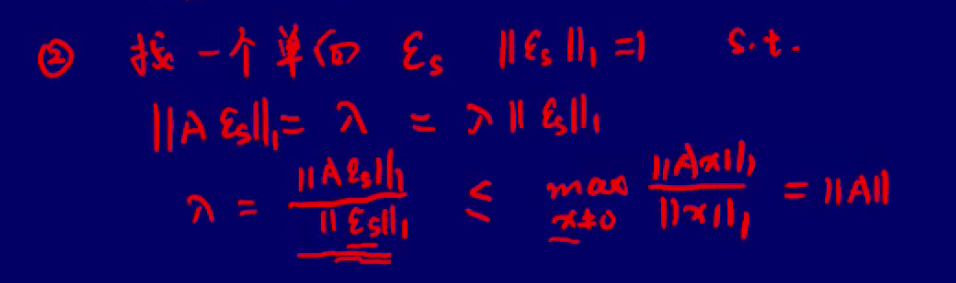 ② 找一个单位 εs ||εs||₁ =1 s.t.
||A εs||₁ = λ = λ || εs||₁
λ = ||A εs||₁ / || εs||₁ ≤ max x≠0 ||Ax||₁ / ||x||₁ = ||A||